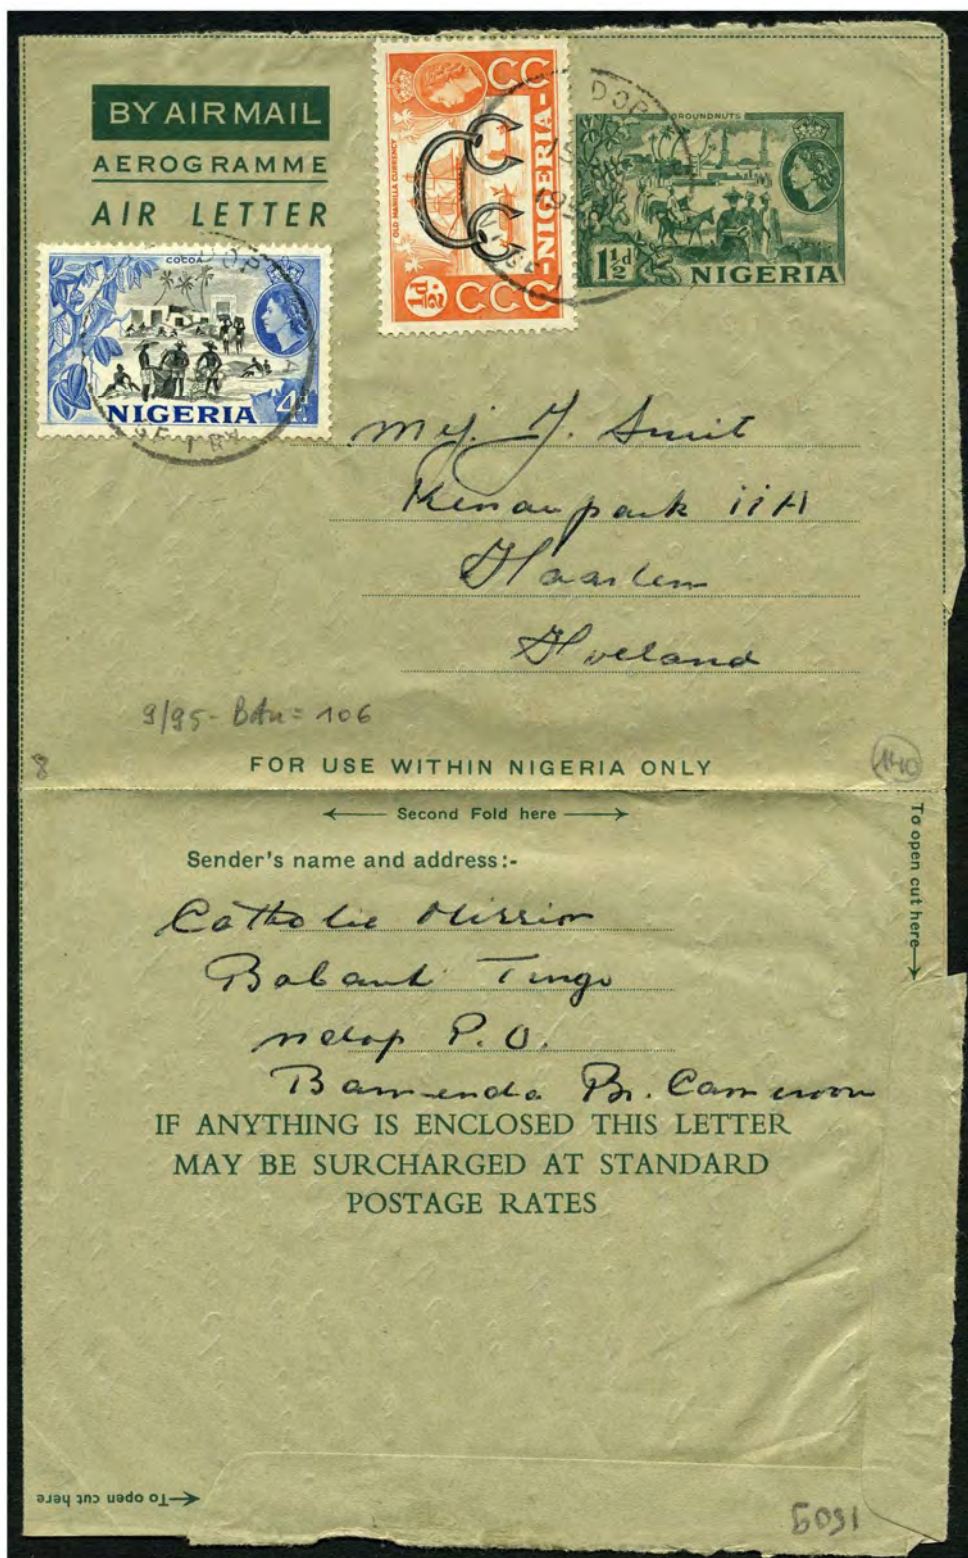 BY AIR MAIL
AEROGRAMME
AIR LETTER
OLD MANILLA CURRENCY
½d.
NIGERIA
GROUNDNUTS
1½d
NIGERIA
COCOA
NIGERIA
4d.
Mej. J. Smit
Kenaupark 11A
Haarlem
Holland
9/95-
= 106
8
FOR USE WITHIN NIGERIA ONLY
140
Second Fold here
To open cut here
Sender's name and address:-
Catholic Mission
Babanki Tungo
Ndop P.O.
Bamenda Br. Cameroon
IF ANYTHING IS ENCLOSED THIS LETTER
MAY BE SURCHARGED AT STANDARD
POSTAGE RATES
To open cut here